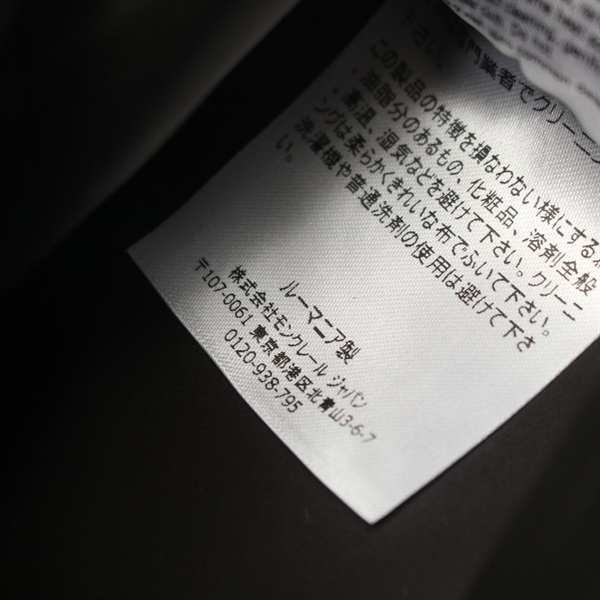 下さい。
専門業者でクリーニン
この製品の特徴を損なわない様にする為
、油脂分のあるもの、化粧品、溶剤全般
、高温、湿気などを避けて下さい。クリーニ
ングは柔らかくきれいな布でふいて下さい。
洗濯機や普通洗剤の使用は避けて下さ
い。
ルーマニア製
株式会社モンクレール ジャパン
〒107-0061 東京都港区北青山3-6-7
0120-938-795